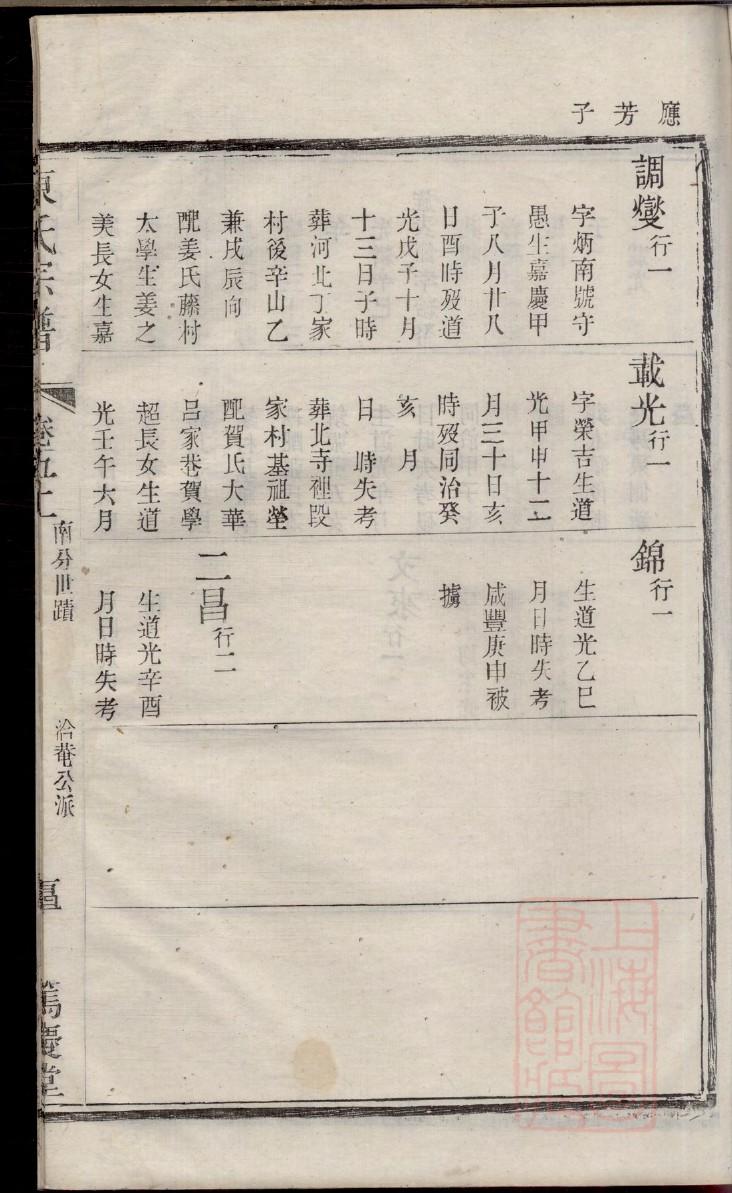 應芳子
調燮行一
字炳南號守
愚生嘉慶甲
子八月廿八
日酉時歿道
光戊子十月
十三日子時
葬河北丁家
村後辛山乙
兼戌辰向
配姜氏藤村
太學生姜之
美長女生嘉
載光行一
字榮吉生道
光甲申十二
月三十日亥
時歿同治癸
亥 月
日 時失考
葬北寺裡段
家村基祖塋
配賀氏大華
呂家巷賀學
超長女生道
光壬午六月
錦行一
生道光乙巳
月日時失考
咸豐庚申被
擄
二昌行二
生道光辛酉
月日時失考
東氏宗譜
卷五十
南分世蹟
洽菴公派
篤慶堂
上海圖
書館藏